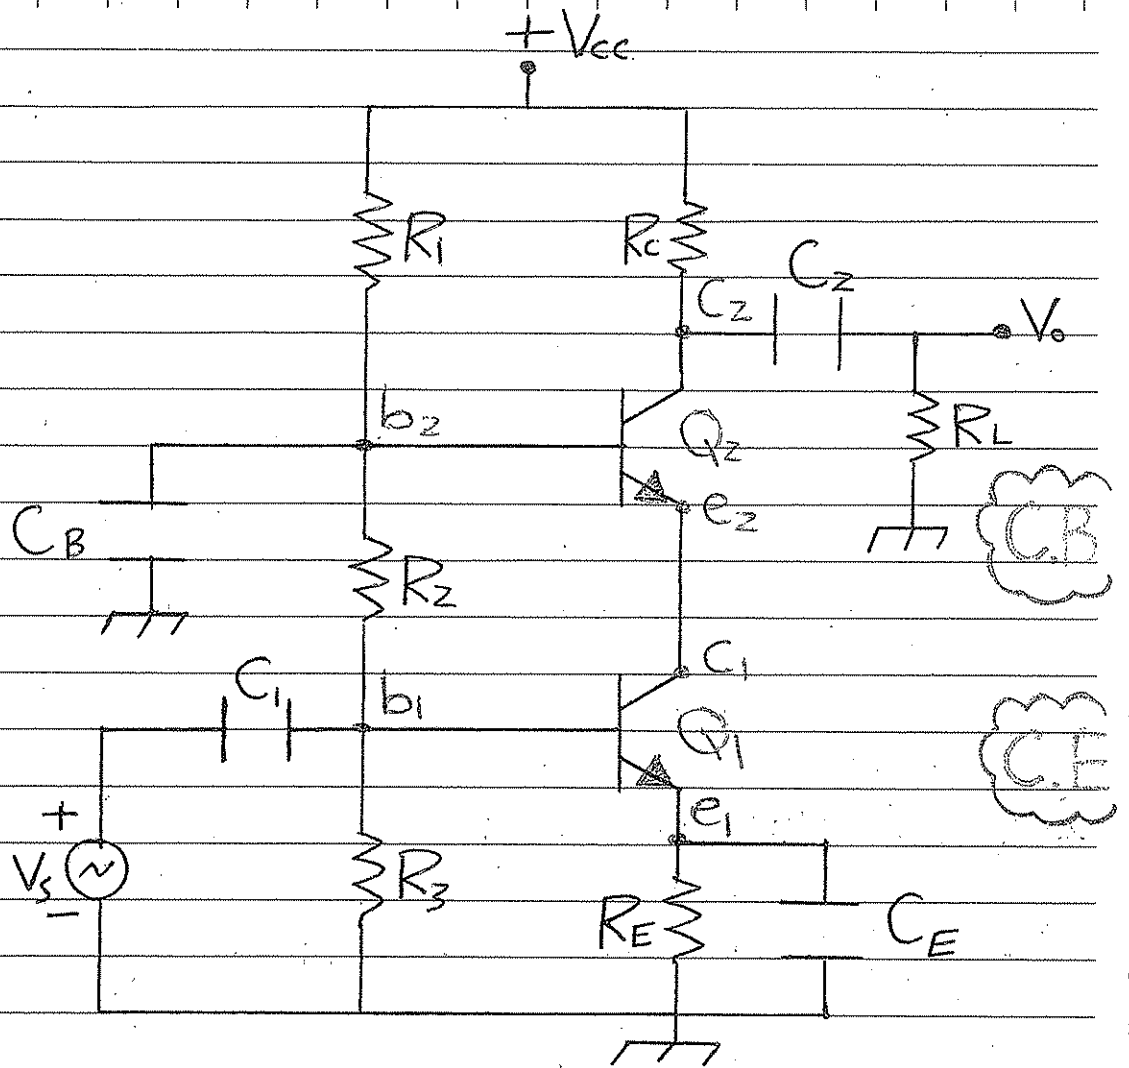 +Vcc
R1
Rc
C2
C2
Vo
b2
Q2
RL
CB
e2
C.B
R2
C1
C1
b1
Q1
C.E
e1
+
Vs
−
R3
RE
CE